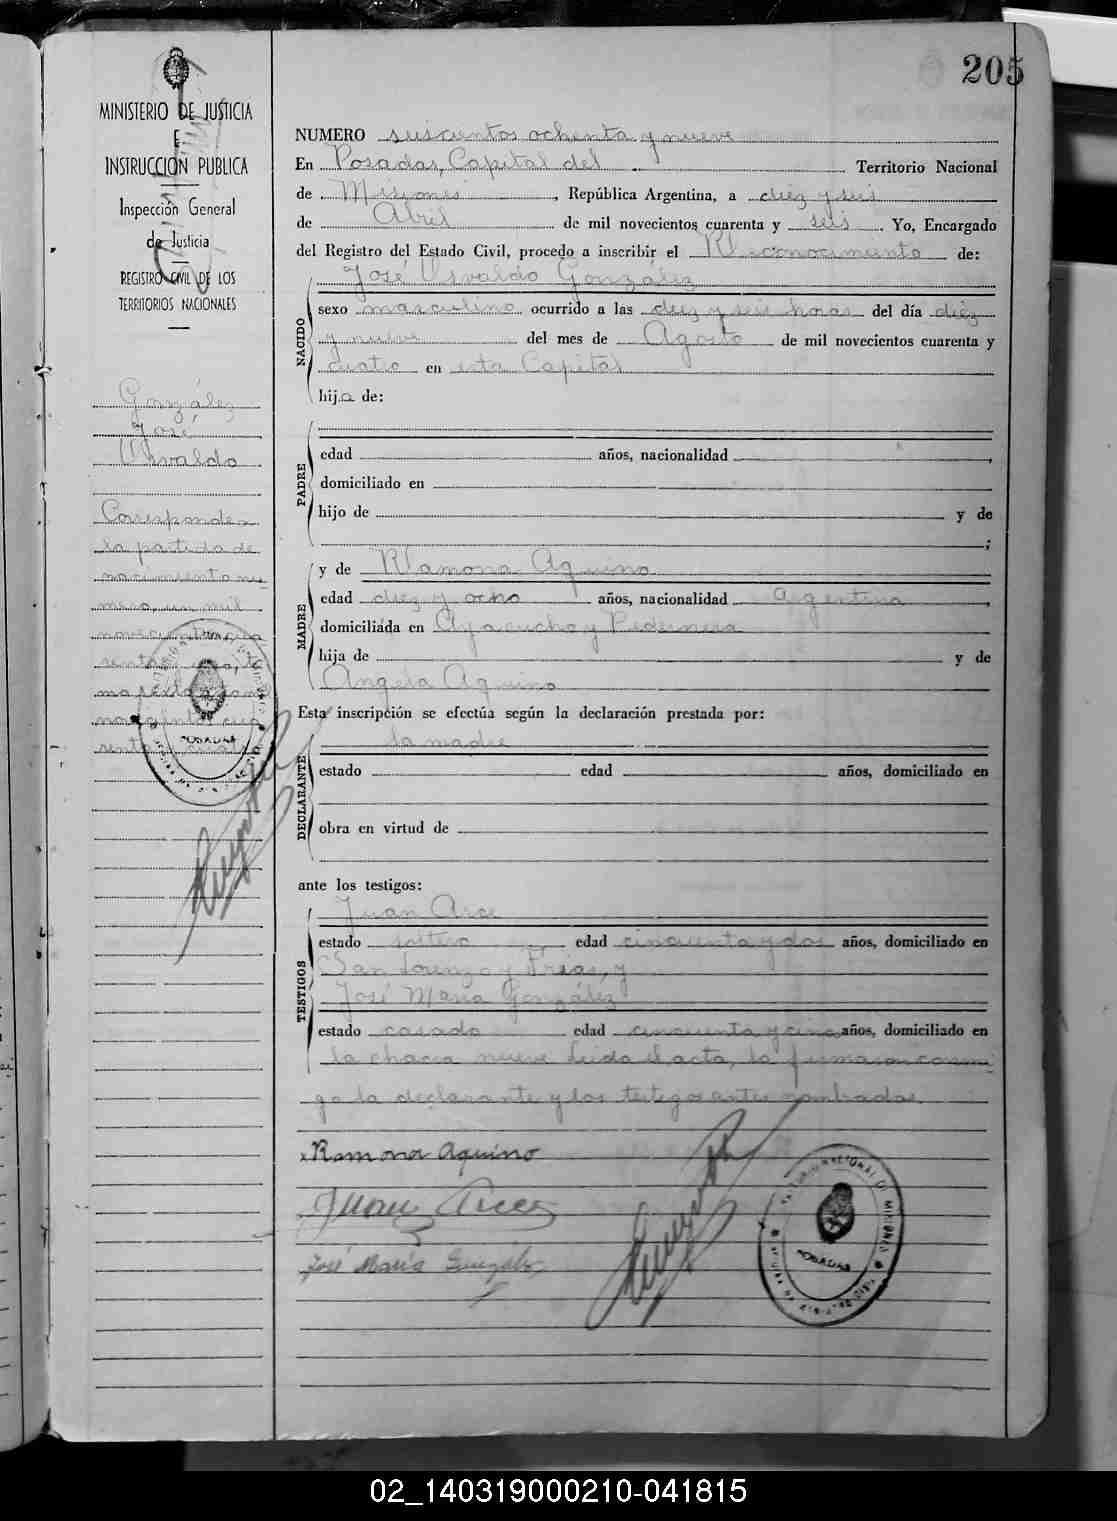 205
MINISTERIO DE JUSTICIA
E
INSTRUCCION PUBLICA
Inspección General
de Justicia
REGISTRO CIVIL DE LOS
TERRITORIOS NACIONALES
González
José
Osvaldo
Corresponde a
la partida de
nacimiento nú
mero, un mil
NUMERO seiscientos ochenta y nueve
En Posadas, Capital del Territorio Nacional
de Misiones, República Argentina, a diez y seis
de Abril de mil novecientos cuarenta y seis. Yo, Encargado
del Registro del Estado Civil, procedo a inscribir el Reconocimiento de:
José Osvaldo González
NACIDO
sexo masculino ocurrido a las diez y seis horas del día diez
y nueve del mes de Agosto de mil novecientos cuarenta y
cuatro en esta Capital
hijo de:
PADRE
edad años, nacionalidad ,
domiciliado en
hijo de y de
;
MADRE
y de Ramona Aquino
edad diez y ocho años, nacionalidad Argentina,
domiciliada en Ayacucho y Pedernera
hija de y de
Angela Aquino
Esta inscripción se efectúa según la declaración prestada por:
la madre
DECLARANTE
estado edad años, domiciliado en
obra en virtud de
ante los testigos:
TESTIGOS
Juan Arce
estado soltero edad cincuenta y dos años, domiciliado en
San Lorenzo y Frías, y
José María González
estado casado edad cincuenta y cinco años, domiciliado en
la chacra nueve. Leida el acta, la firmaron conmi
go la declarante y los testigos antes nombrados.
Ramona Aquino
Juan Arce
José María González
POSADAS
POSADAS
02_140319000210-041815